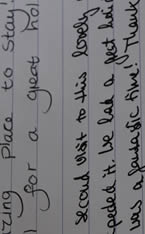 zing place to stay!
for a great hol
second visit to this lovely
it. We had a
was a fantastic time! Thank